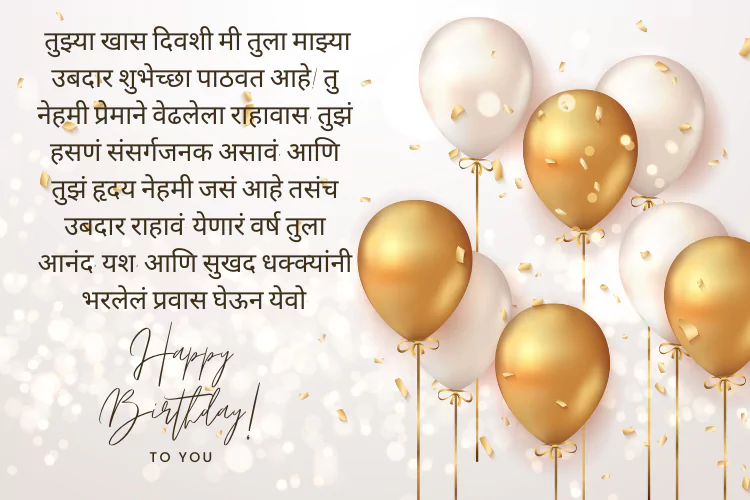 तुझ्या खास दिवशी मी तुला माझ्या
उबदार शुभेच्छा पाठवत आहे/ तु
नेहमी प्रेमाने वेढलेला राहावास तुझं
हसणं संसर्गजनक असावं आणि
तुझं हृदय नेहमी जसं आहे तसंच
उबदार राहावं येणारं वर्ष तुला
आनंद यश आणि सुखद धक्क्यांनी
भरलेलं प्रवास घेऊन येवो
Happy
Birthday!
TO YOU